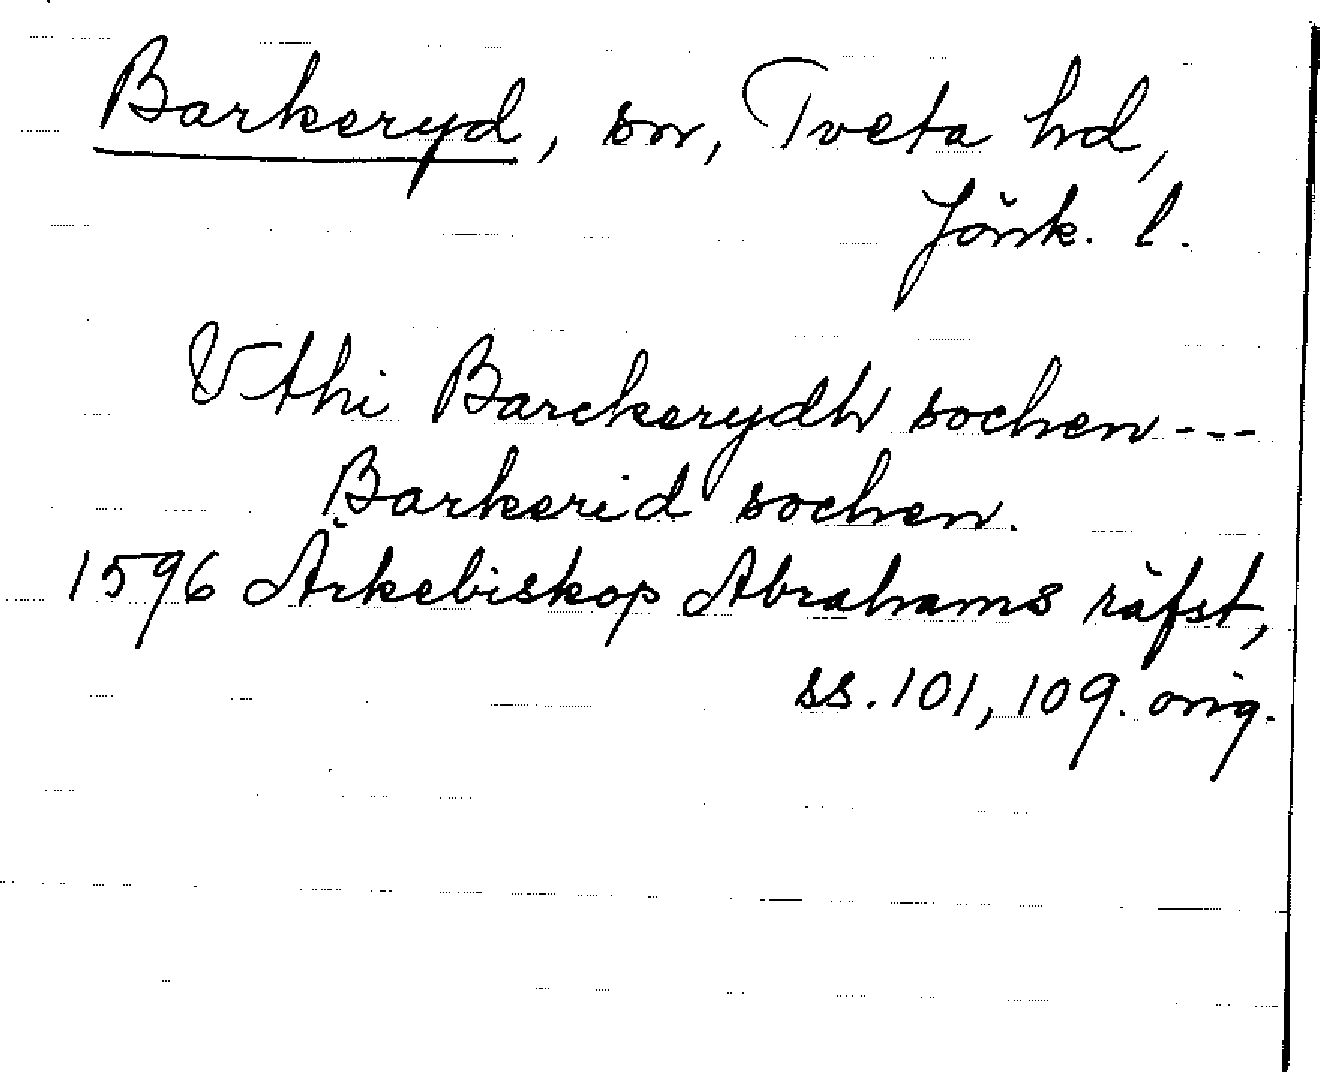 Barkeryd, sn, Tveta hd,
Jönk. l.
Vthi Barckerydh sochen ---
Barkerid sochen.
1596 Ärkebiskop Abrahams räfst,
ss. 101, 109. orig.